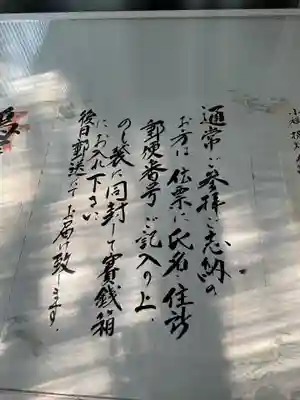 通常ご参拝ご志納の
お方は伝票に氏名住所
郵便番号ご記入の上、
のし袋に同封して賽銭箱
にお入れ下さい
後日郵送にてお届け致します。